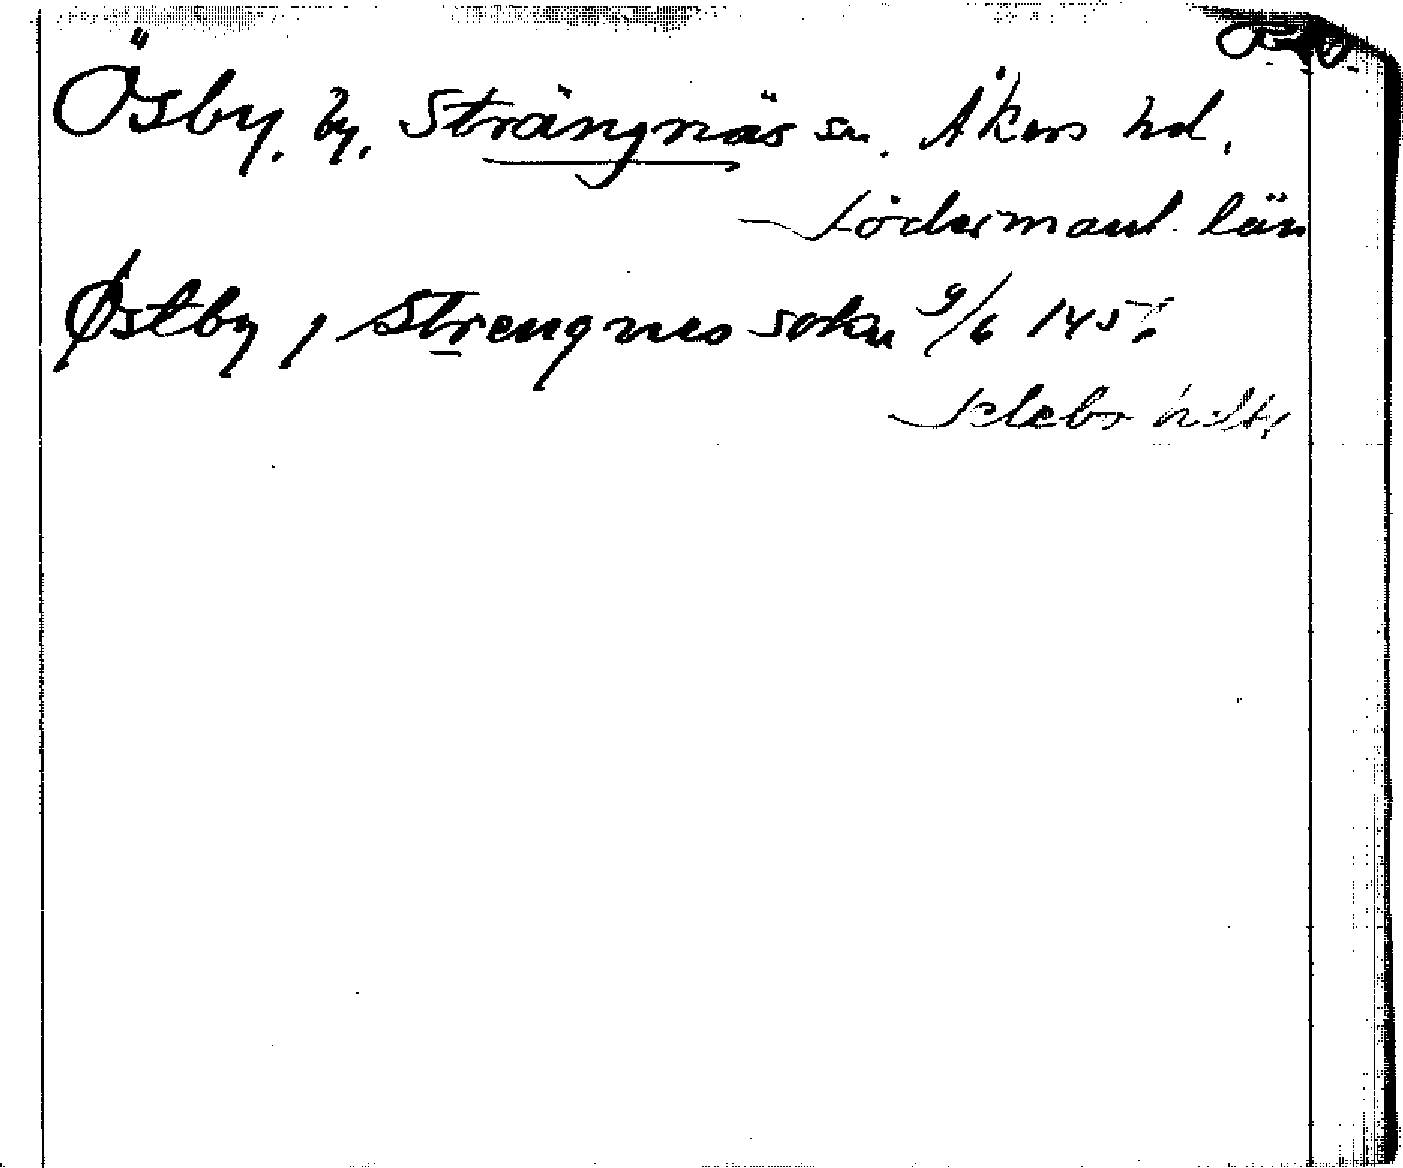 Ösby, by, Strängnäs sn. Åkers hd,
Söderманl. län
Østby, Strengnes sokn 9/6 145